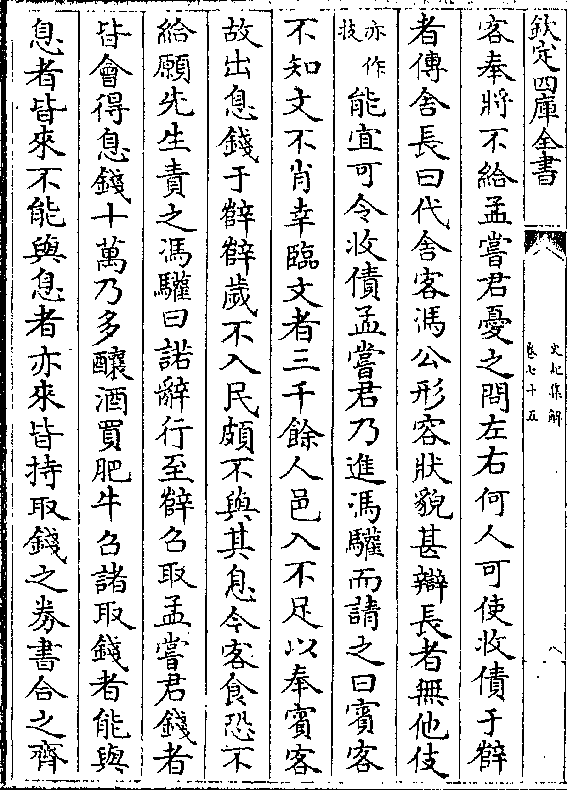 欽定四庫全書
史記集解
卷七十五
八
客奉將不給孟嘗君憂之問左右何人可使收債于薛
者傳舍長曰代舍客馮公形容狀貌甚辯長者無他伎
亦作
技
能宜可令收債孟嘗君乃進馮驩而請之曰賓客
不知文不肖幸臨文者三千餘人邑入不足以奉賓客
故出息錢于薛薛歲不入民頗不與其息今客食恐不
給願先生責之馮驩曰諾辭行至薛召取孟嘗君錢者
皆會得息錢十萬乃多釀酒買肥牛召諸取錢者能與
息者皆來不能與息者亦來皆持取錢之券書合之齊